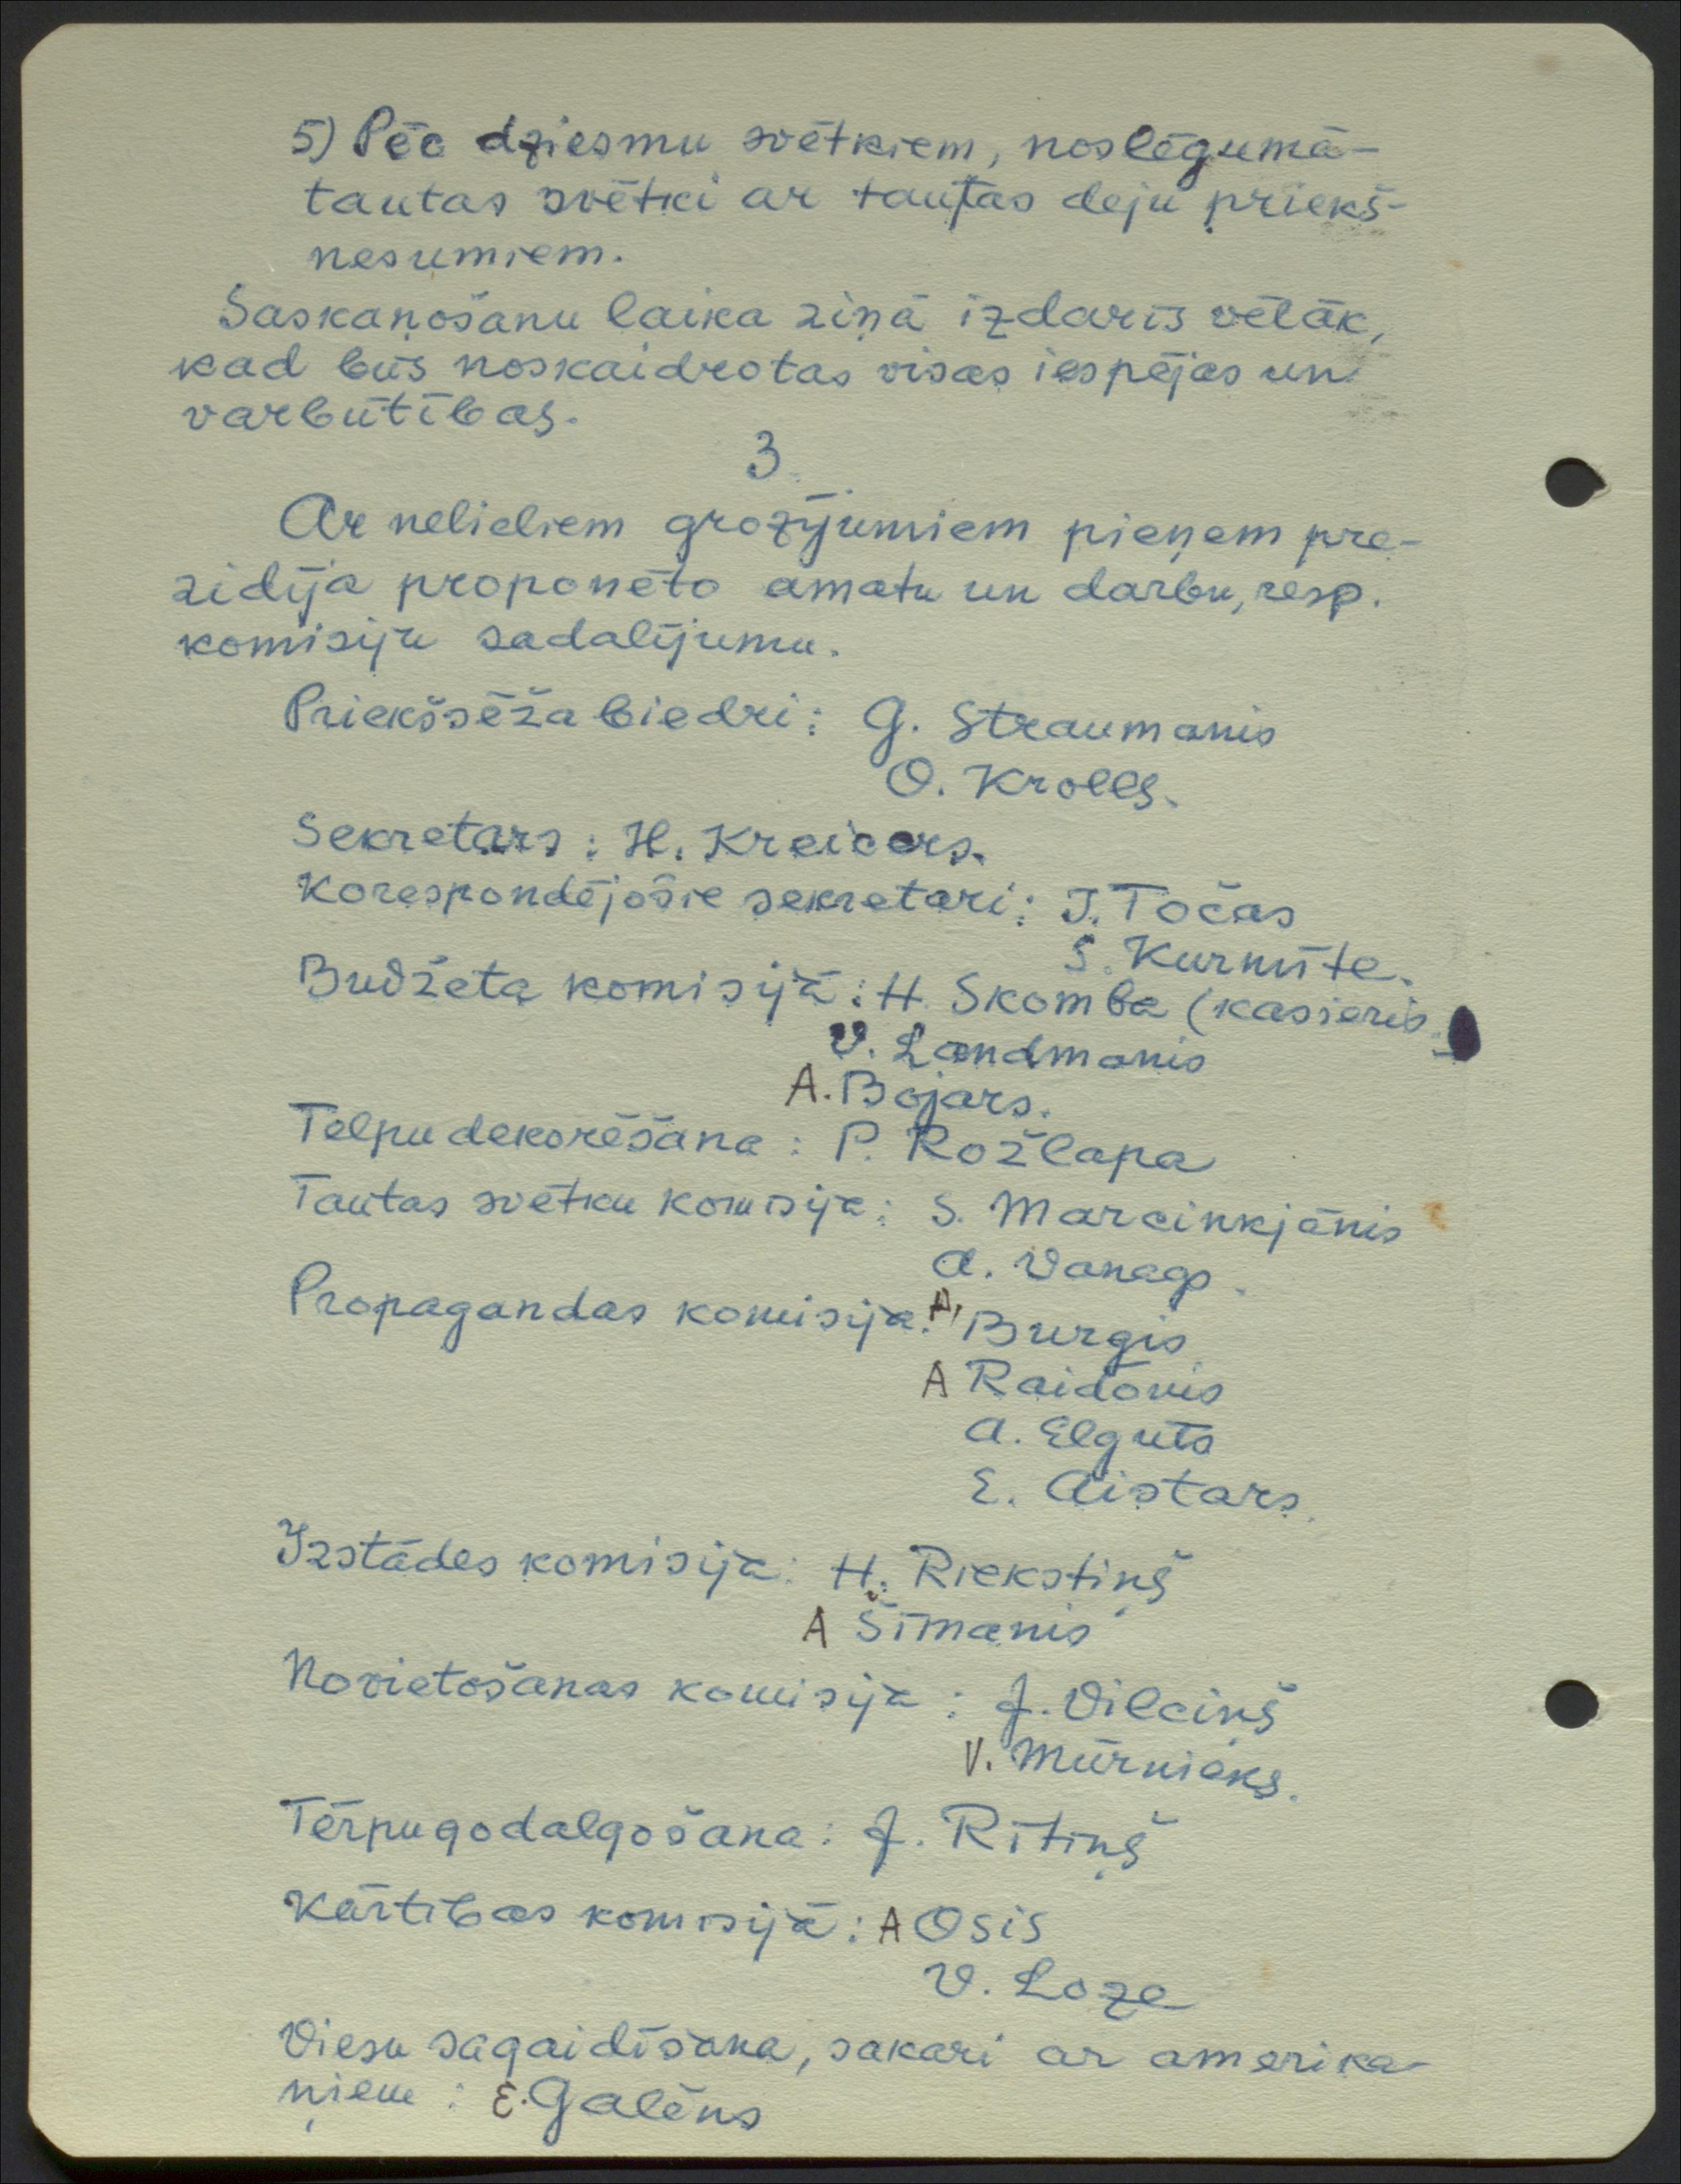 5) Pēc dziesmu svētkiem, noslēgumā-
tautas svētki ar tautas deju priekš-
nesumiem.
Saskaņošanu laika ziņā izdarīs vēlāk,
kad būs noskaidrotas visas iespējas un
varbūtības.
3.
Ar nelieliem grozījumiem pieņem pre-
zidija proponēto amatu un darbu, resp.
komisiju sadalījumu.
Priekšsēža biedri: G. Straumanis
O. Krolls.
Sekretars: H. Kreicers.
Korespondējošie sekretari: J. Točas
S. Kurmīte.
Budžeta komisijā: H. Skomba (kasieris
V. Landmanis
A. Bojars.
Telpu dekorēšana: P. Rožlapa
Tautas svētku komisija: S. Marcinkjānis
A. Vanags.
Propagandas komisija: A. Burgis
A Raidonis
A. Elguts
E. Aistars.
Izstādes komisija: H. Riekstiņš
A Šīmanis
Novietošanas komisija: J. Vilciņš
V. Mūrnieks.
Tērpu godalgošana: J. Rītiņš
Kārtības komisijā: A Osis
V. Loze
Viesu sagaidīšana, sakari ar amerika-
ņiem: E. Galēns